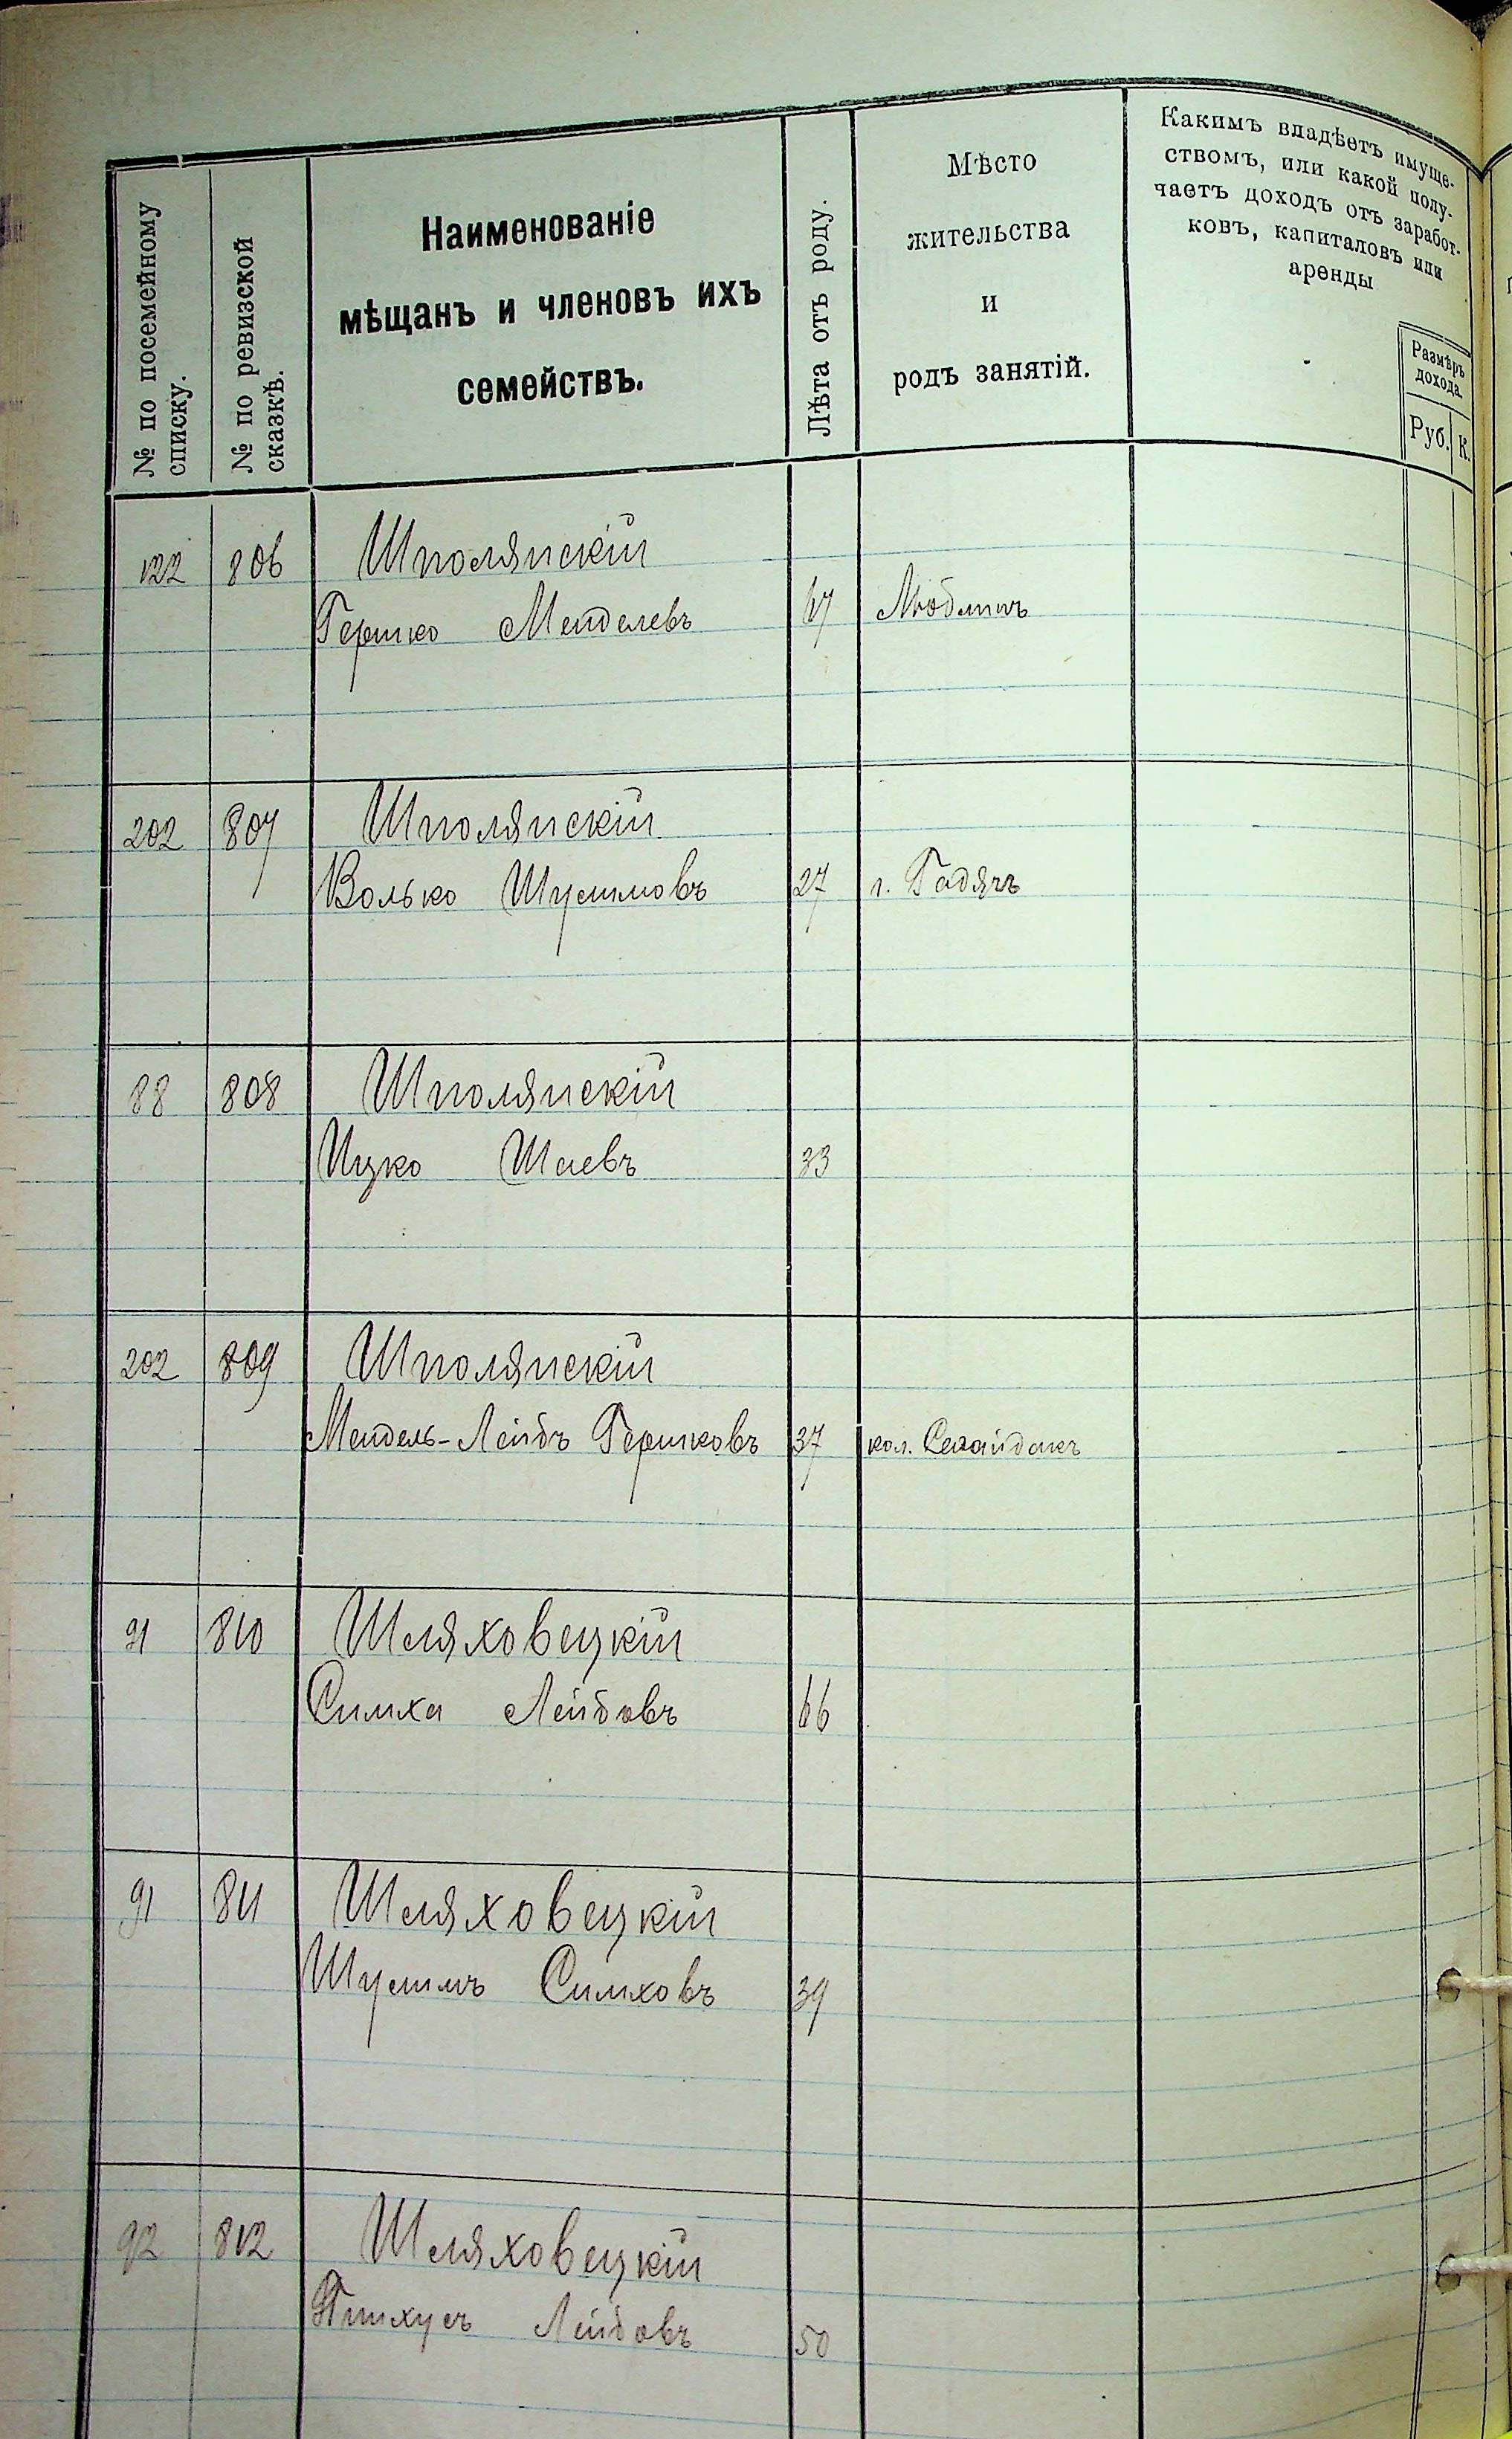 № по посемейному
списку.
№ по ревизской
сказкѣ.
Наименованіе
мѣщанъ и членовъ ихъ
семействъ.
Лѣта отъ роду.
Мѣсто
жительства
и
родъ занятій.
Какимъ владѣетъ имуще-
ствомъ, или какой полу-
чаетъ доходъ отъ заработ-
ковъ, капиталовъ или
аренды
Размѣръ
дохода.
Руб. К.
122 806 Шполянскій
Гершко Менделевъ 67 Люблинъ
202 807 Шполянскій
Волько Шулимовъ 27 г. Гадячъ
88 808 Шполянскій
Ицко Шаевъ 33
202 809 Шполянскій
Мендель-Лейбъ Гершковъ 37 кол. Сагайдакъ
91 810 Шляховецкій
Симха Лейбовъ 66
91 811 Шляховецкій
Шулимъ Симховъ 39
92 812 Шляховецкій
Пинхусъ Лейбовъ 50